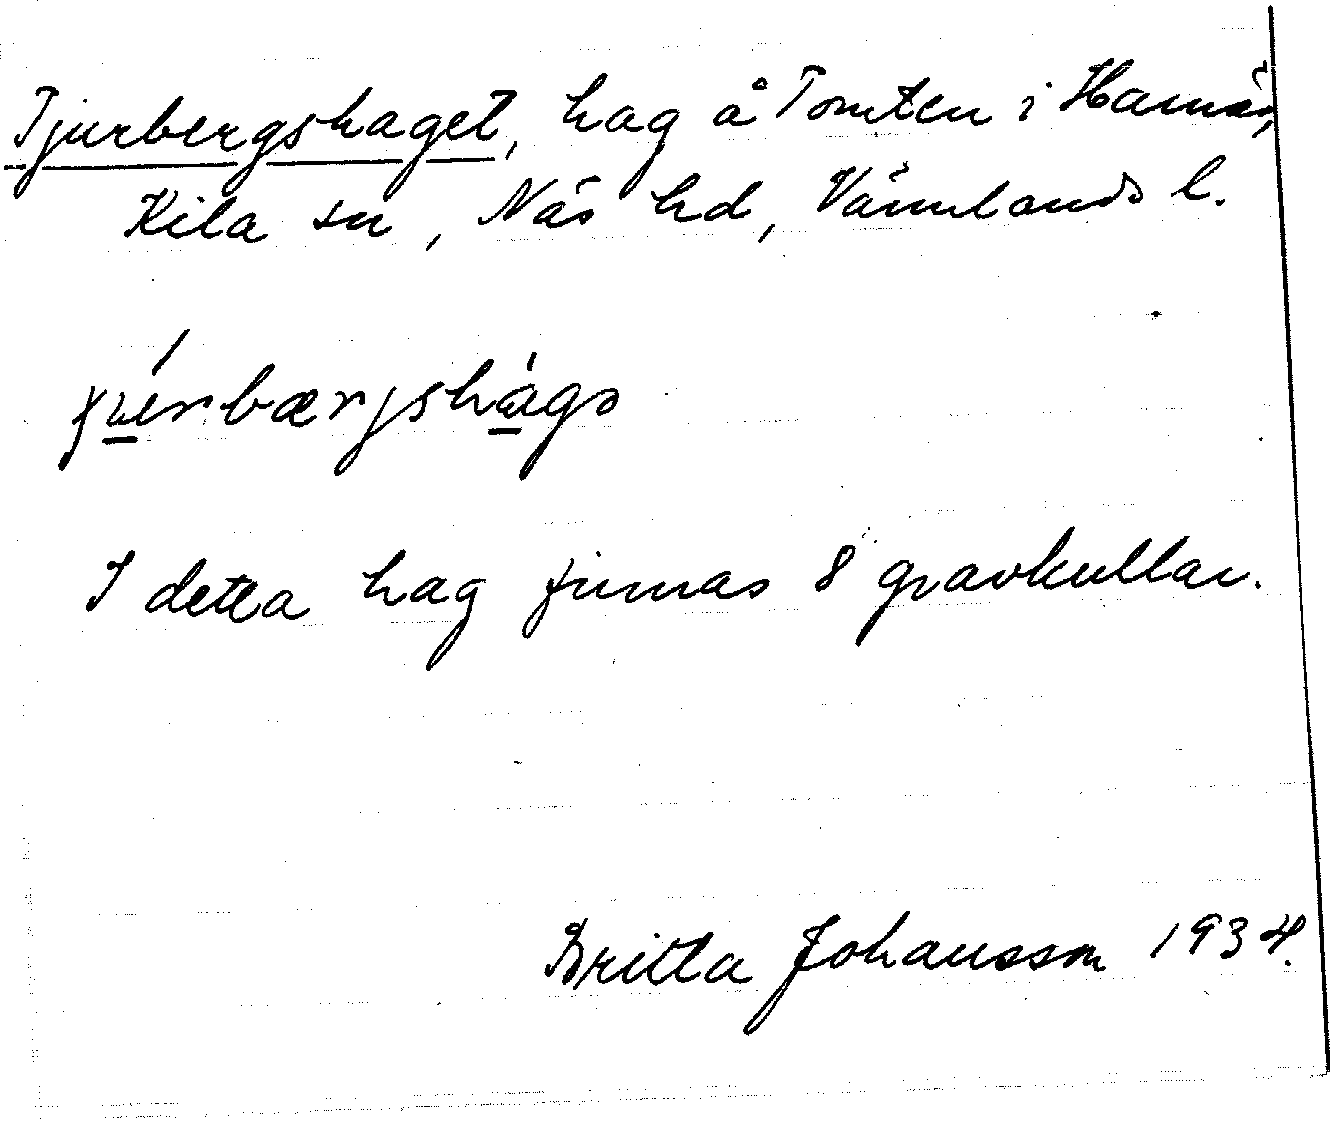 Tjurbergshaget, hag å Tomten i Harnäs,
Kila sn, Näs hd, Värmlands l.
I detta hag finnas 8 gravkullar.
Britta Johansson 1934.